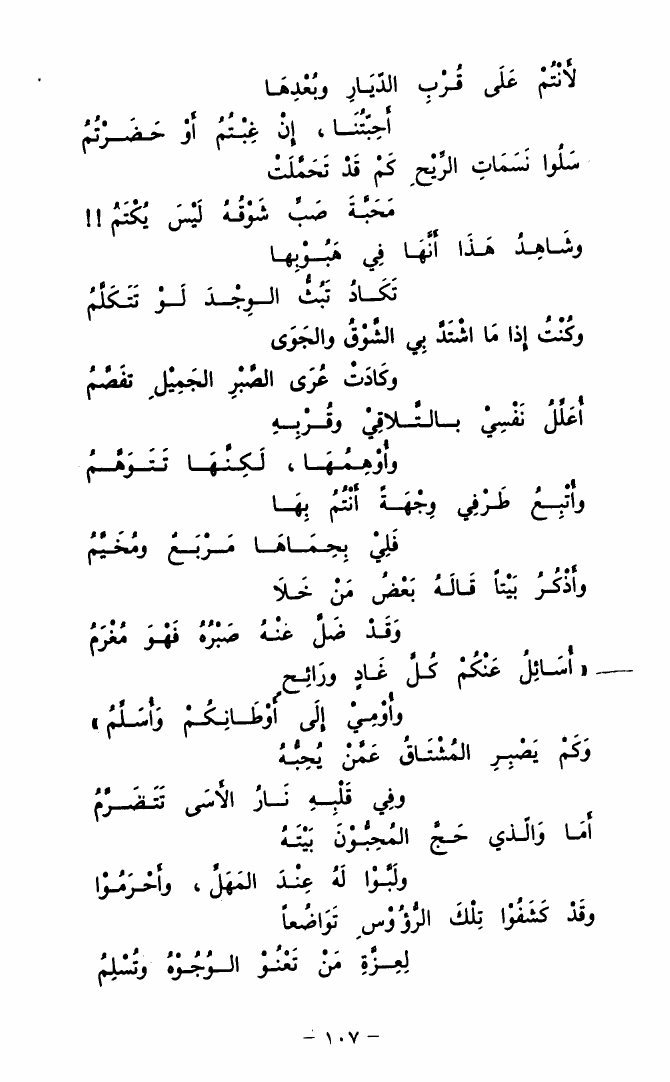 لَأَنْتُمْ عَلَى قُرْبِ الدِّيَارِ وبُعْدِهَا
أَحِبَّتُنَا ، إِنْ غِبْتُمُ أَوْ حَضَرْتُمُ
سَلُوا نَسَمَاتِ الرِّيْحِ كَمْ قَدْ تَحَمَّلَتْ
مَحَبَّةَ صَبٍّ شَوْقُهُ لَيْسَ يُكْتَمُ !!
وشَاهِدُ هَذَا أَنَّهَا فِي هُبُوْبِها
تَكَادُ تَبُثُّ الوِجْدَ لَوْ تَتَكَلَّمُ
وكُنْتُ إِذا مَا اشْتَدَّ بِي الشَّوْقُ والجَوَى
وكَادَتْ عُرَى الصَّبْرِ الجَمِيْلِ تفَصَّمُ
أُعَلِّلُ نَفْسِيْ بالتَّلاقِيْ وقُرْبِهِ
وأُوْهِمُهَا ، لَكِنَّهَا تَتَوَهَّمُ
وأُتْبِعُ طَرْفِي وِجْهَةً أَنْتُمُ بِهَا
فَلِيْ بِحِمَاهَا مَرْبَعُ ومُخَيَّمُ
وأَذْكُرُ بَيْتاً قَالَهُ بَعْضُ مَنْ خَلَا
وَقَدْ ضَلَّ عَنْهُ صَبْرُهُ فَهْوَ مُغْرَمُ
« أُسَائِلُ عَنْكُمْ كُلَّ غَادٍ ورَائِحٍ
وأُوْمِيْ إِلَى أَوْطَانِكُمْ وَأُسَلِّمُ »
وَكَمْ يَصْبِرِ المُشْتَاقُ عَمَّنْ يُحِبُّهُ
وفِي قَلْبِهِ نَارُ الأَسَى تَتَضَرَّمُ
أَمَا وَالَّذي حَجَّ المُحِبُّوْنَ بَيْتَهُ
ولَبَّوْا لَهُ عِنْدَ المَهَلِّ ، وأَحْرَمُوْا
وقَدْ كَشَفُوْا تِلْكَ الرُّؤُوْسِ تَوَاضُعاً
لِعِزَّةِ مَنْ تَعْنُوْ الوُجُوْهُ وتُسْلِمُ
- ١٠٧ -